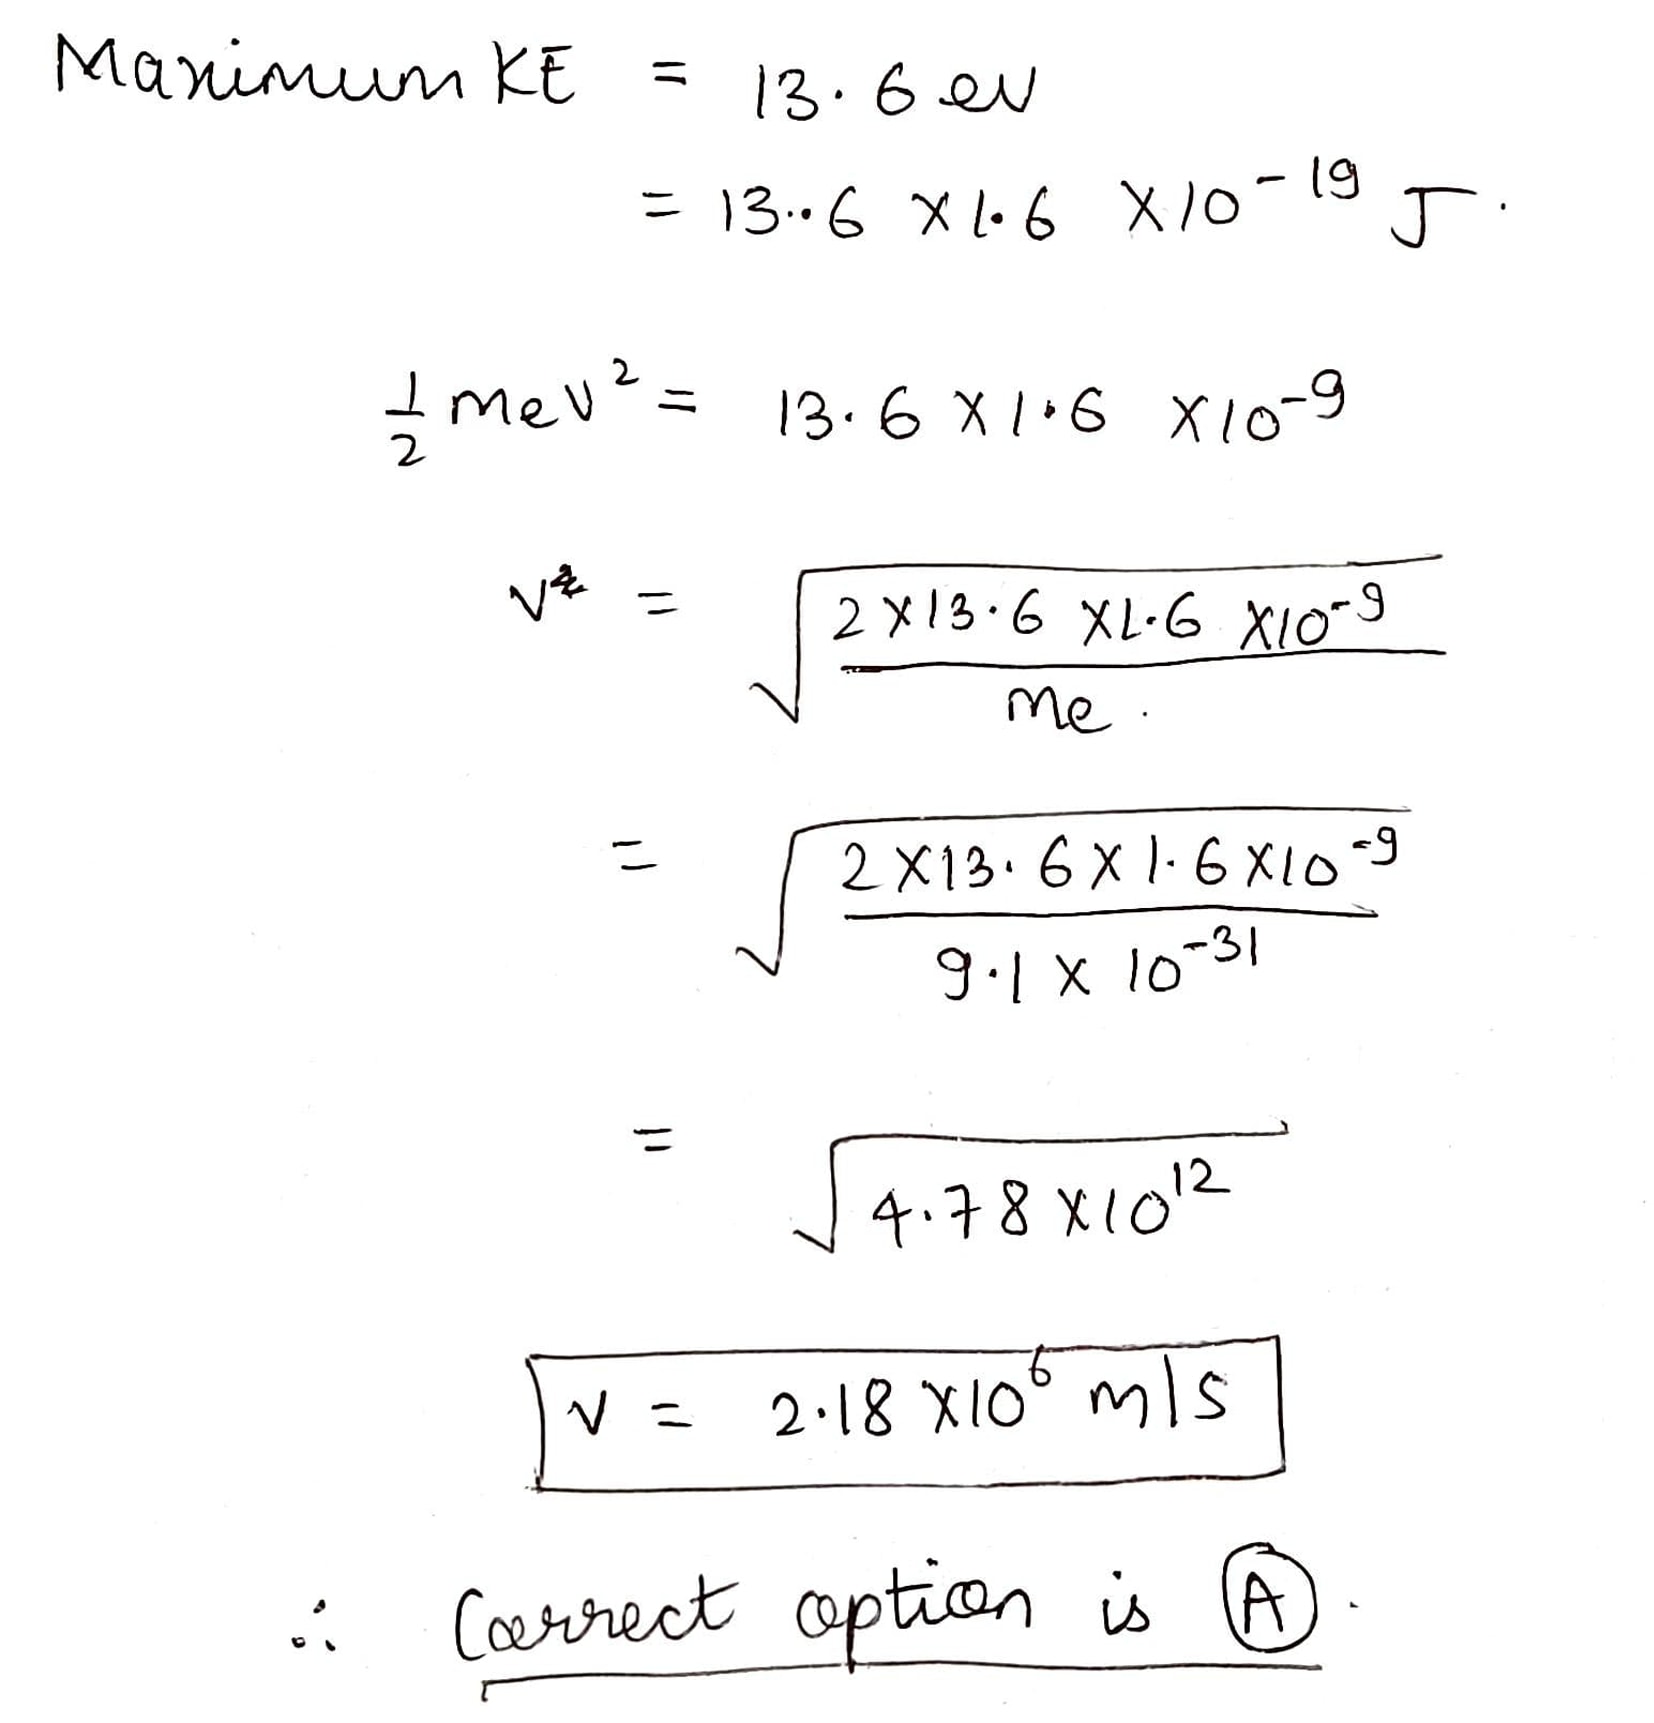 Maximum KE = 13.6 eV
= 13..6 × 1.6 × 10^-19 J.
1/2 mev² = 13.6 × 1.6 × 10^-9
v = √(2 × 13.6 × 1.6 × 10^-9 / me.)
= √(2 × 13.6 × 1.6 × 10^-9 / 9.1 × 10^-31)
= √(4.78 × 10^12)
v = 2.18 × 10^6 m/s
∴ Correct option is (A).